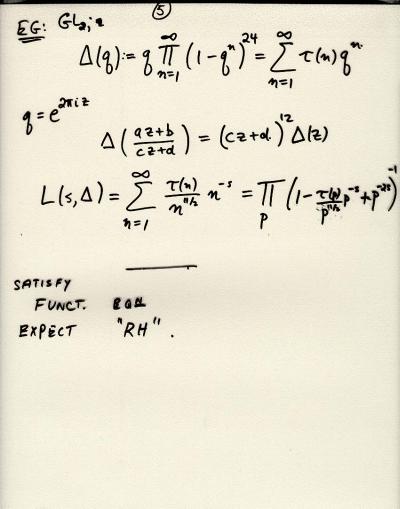 ⑤
EG: GL₂;
Δ(q) := q ∏_{n=1}^{∞} (1-qⁿ)²⁴ = ∑_{n=1}^{∞} τ(n) qⁿ.
q = e^{2πiz}
Δ((az+b)/(cz+d)) = (cz+d)¹² Δ(z)
L(s,Δ) = ∑_{n=1}^{∞} τ(n)/n^{11/2} n^{-s} = ∏_p (1 - τ(p)/p^{11/2} p^{-s} + p^{-2s})^{-1}
SATISFY
FUNCT. EQN
EXPECT "RH".